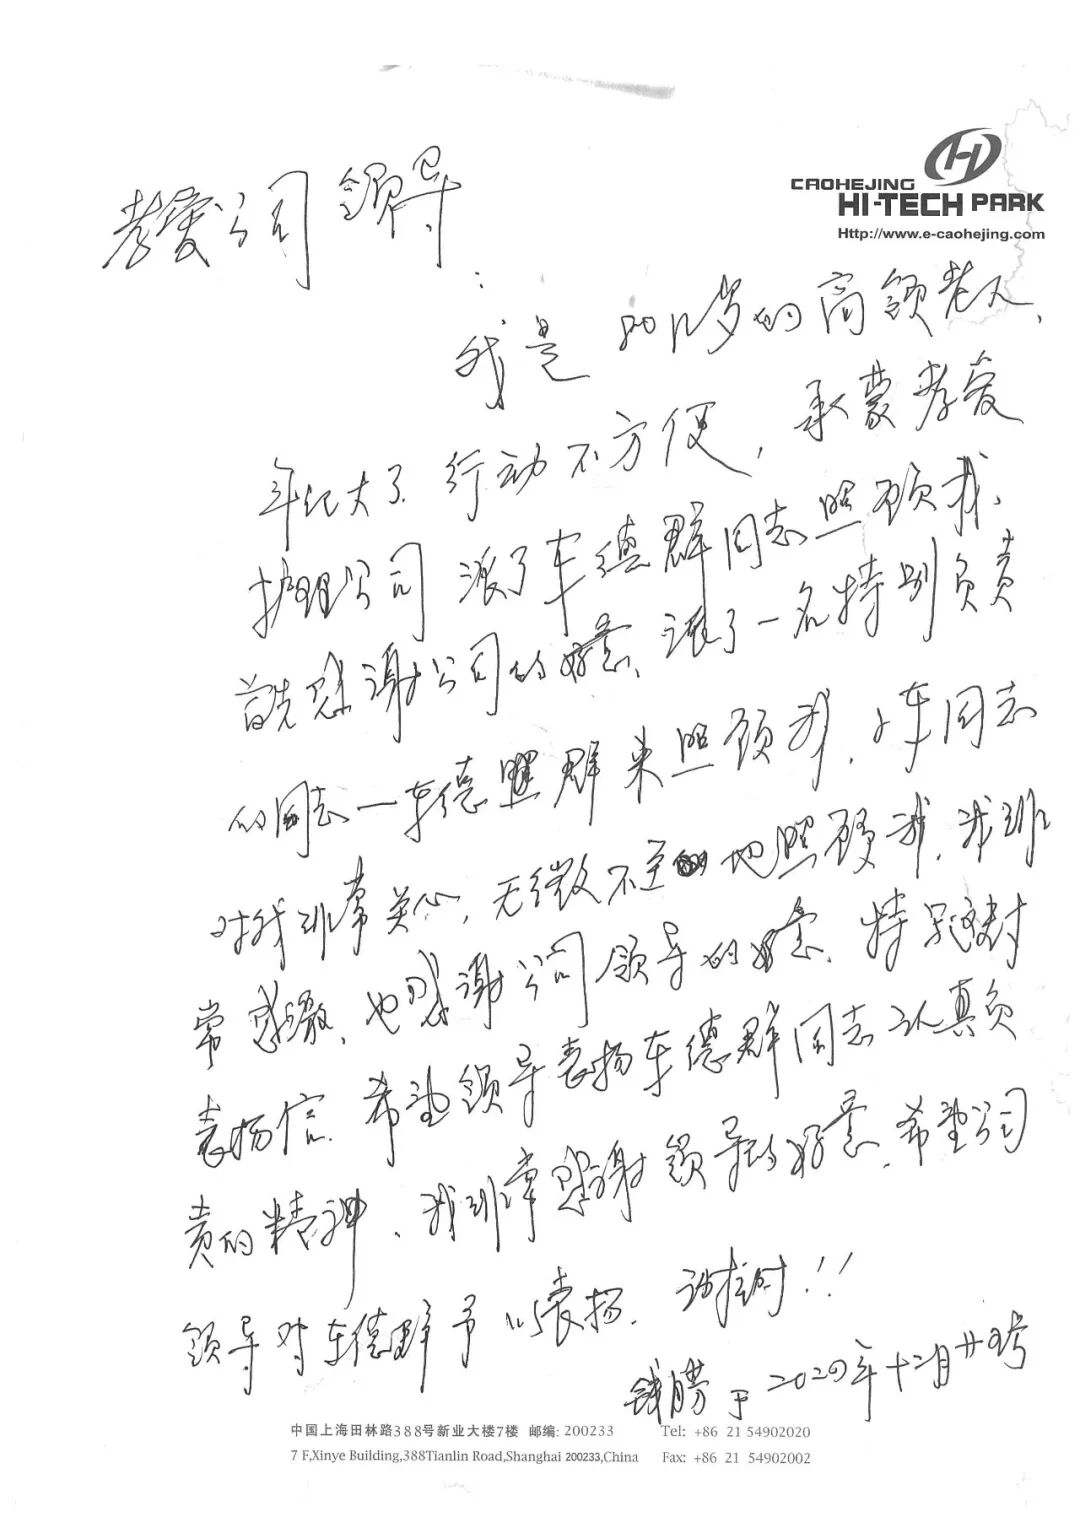 CAOHEJING
HI-TECH PARK
Http://www.e-caohejing.com
孝爱公司领导:
我是 岁的高领老人,
年纪大了行动不方便,承蒙孝爱
护理公司派了车德群同志照顾我、
首先感谢公司的好意、派了一名特别负责
的同志一车德群来照顾我,小车同志
对我非常关心,无微不至地照顾我,我非
常感激、也感谢公司领导的好意、特写这封
表扬信、希望领导表扬车德群同志认真负
责的精神、我非常感谢领导的好意、希望公司
领导对车德群予以表扬、 !!
钱 于2020年十二月廿 号
中国上海田林路388号新业大楼7楼 邮编: 200233 Tel: +86 21 54902020
7 F,Xinye Building,388Tianlin Road,Shanghai 200233,China Fax: +86 21 54902002